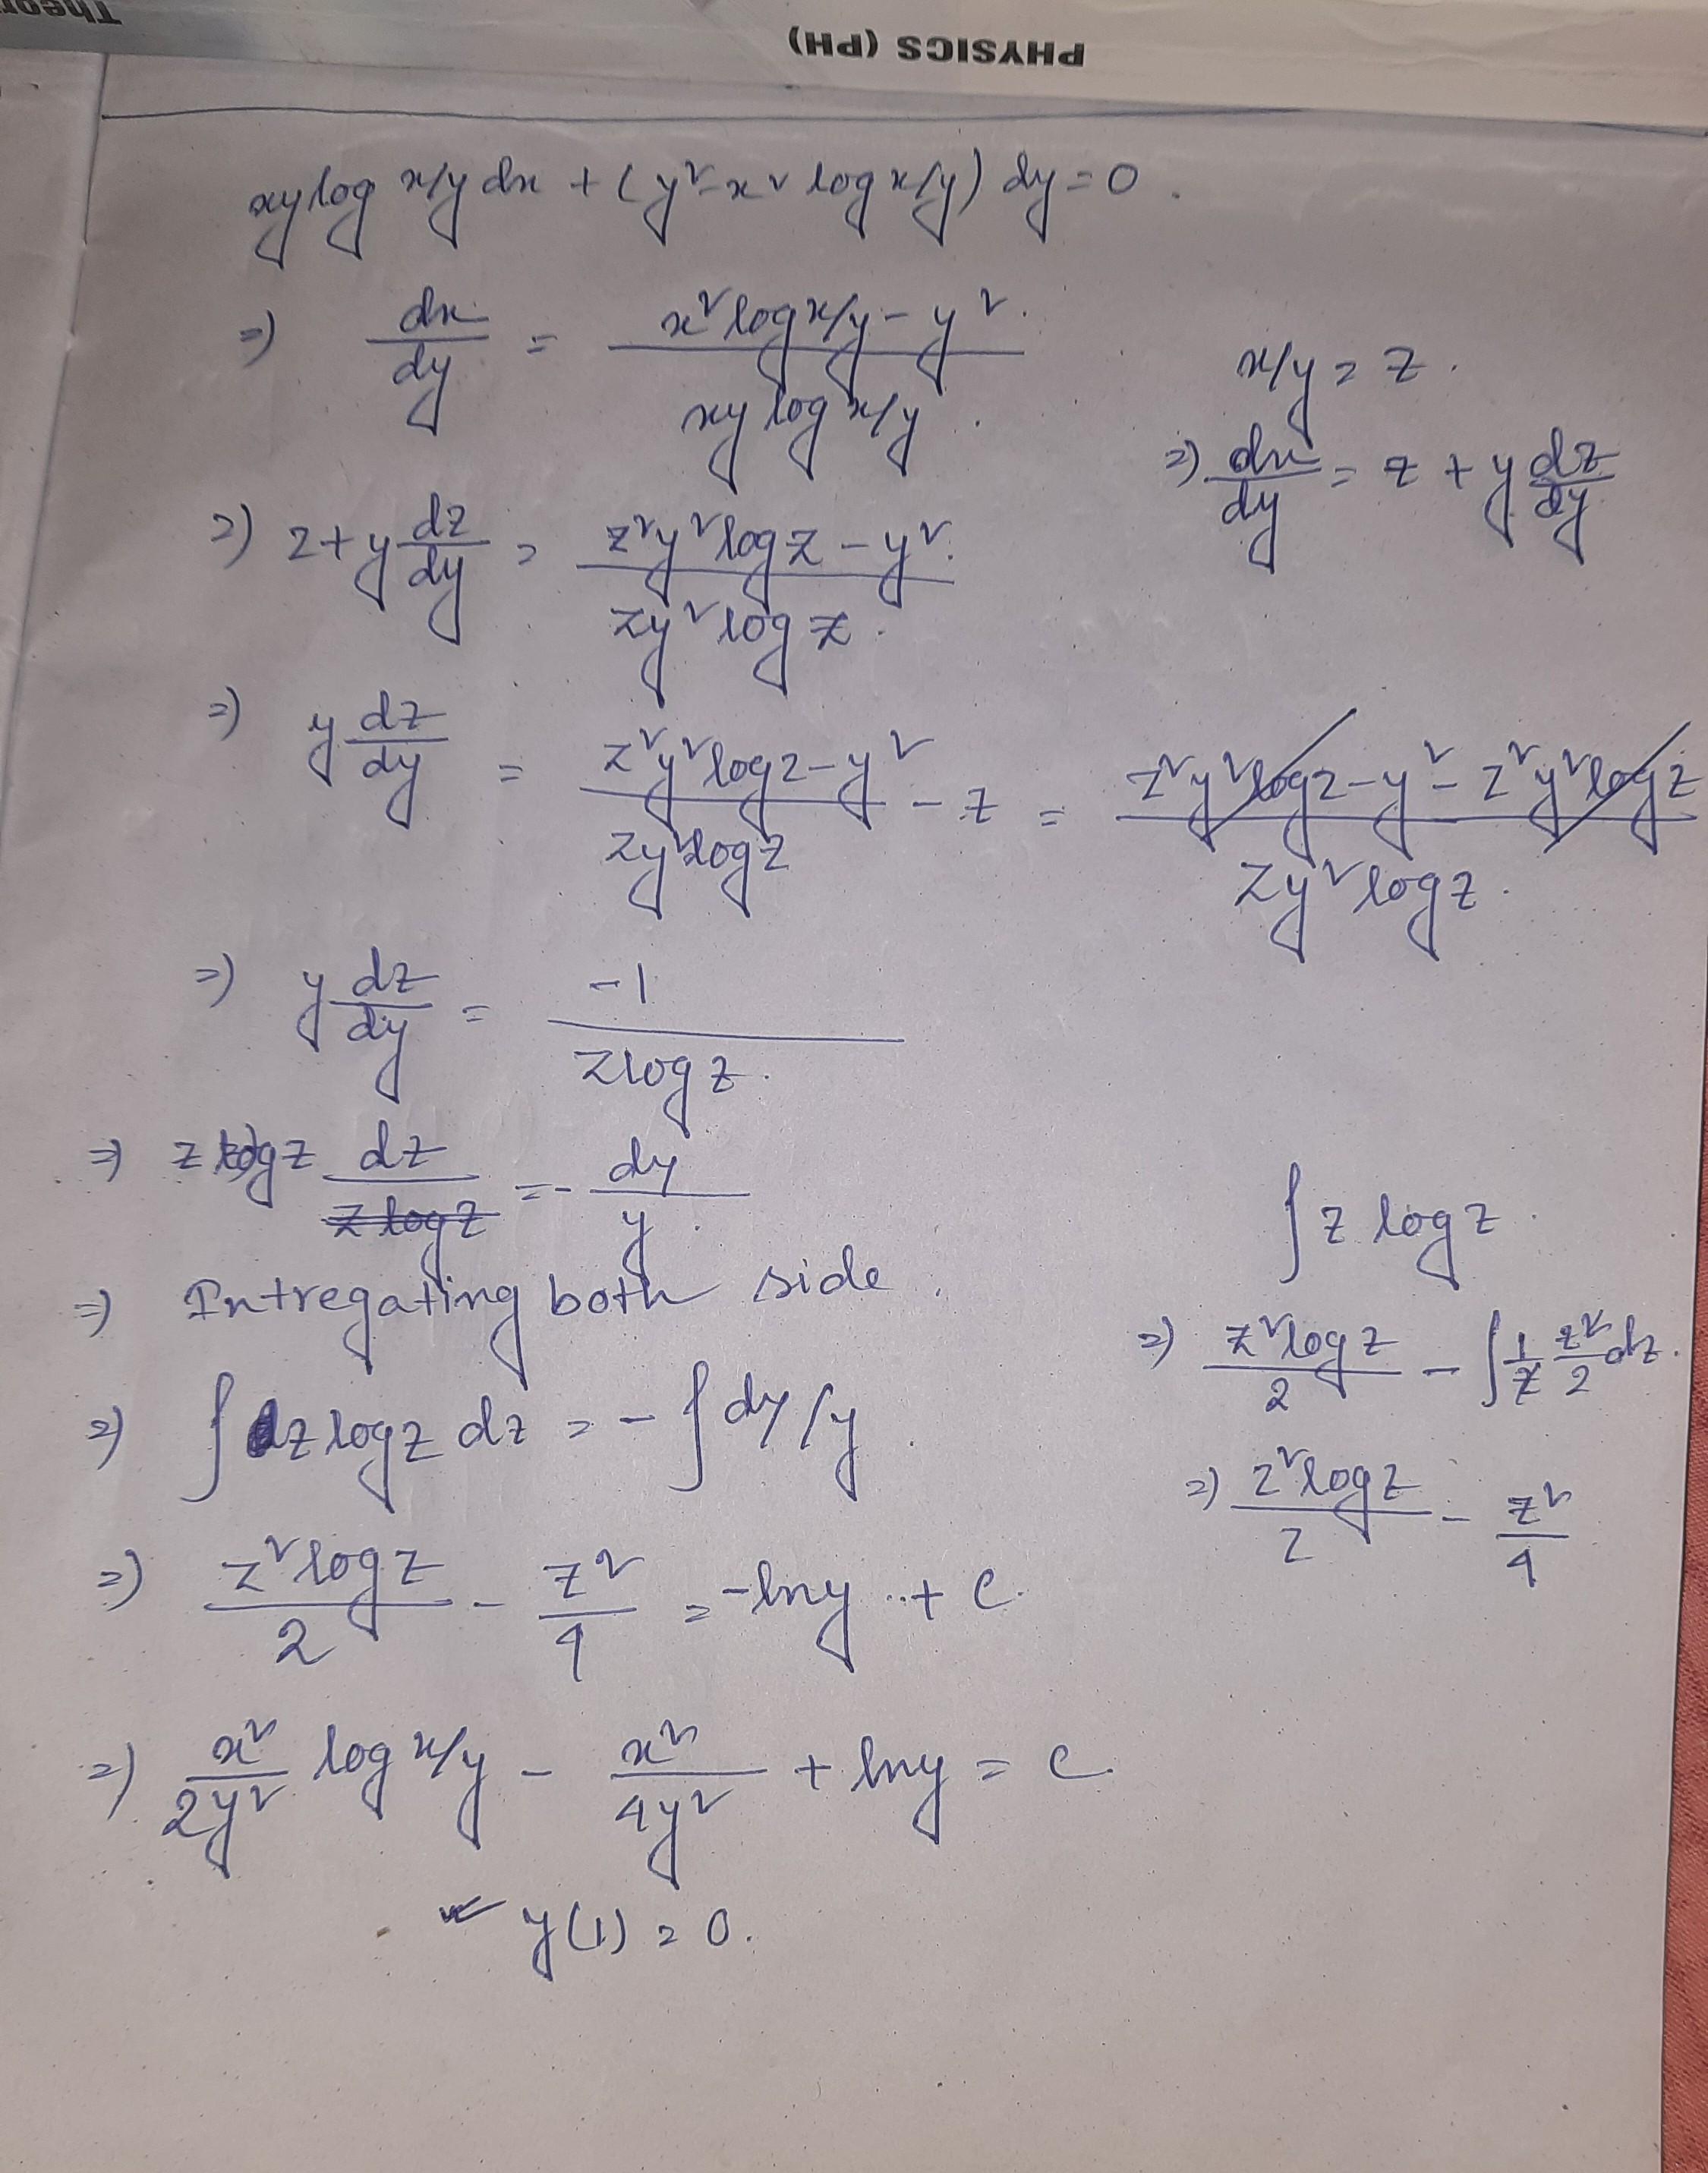 Theor
PHYSICS (PH)
xy log x/y dx + (y² - x² log x/y) dy = 0.
⇒) dx/dy = (x² log x/y - y².)/(xy log x/y.)
x/y = z.
⇒) dx/dy = z + y dz/dy
⇒) z + y dz/dy = (z²y² log z - y².)/(zy² log z.)
⇒) y dz/dy = (z²y² log z - y²)/(zy² log z) - z = (z²y² log z - y² - z²y² log z)/(zy² log z.)
⇒) y dz/dy = -1/(z log z.)
⇒) z log z dz/(z log z) = - dy/y.
⇒) Intregating both side.
⇒) ∫ z log z dz = - ∫ dy/y.
⇒) z² log z/2 - z²/4 = -ln y + c.
⇒) x²/2y² log x/y - x²/4y² + ln y = c.
y(1) = 0.
∫ z log z.
⇒) z² log z/2 - ∫ 1/z z²/2 dz.
⇒) z² log z/2 - z²/4